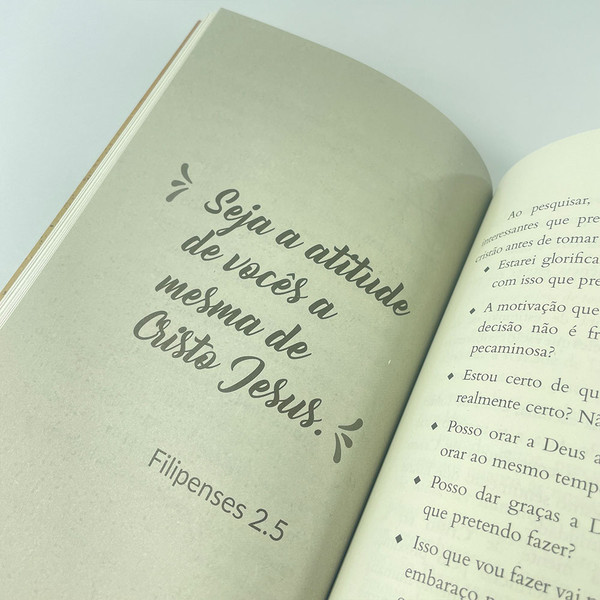 Seja a atitude
de vocês a
mesma de
Cristo Jesus.
Filipenses 2.5
Ao pesquisar,
interessantes que pre
cristão antes de tomar
Estarei glorifica
com isso que pre
A motivação que
decisão não é fr
pecaminosa?
Estou certo de qu
realmente certo? Nã
Posso orar a Deus a
orar ao mesmo temp
Posso dar graças a D
que pretendo fazer?
Isso que vou fazer vai
embaraço